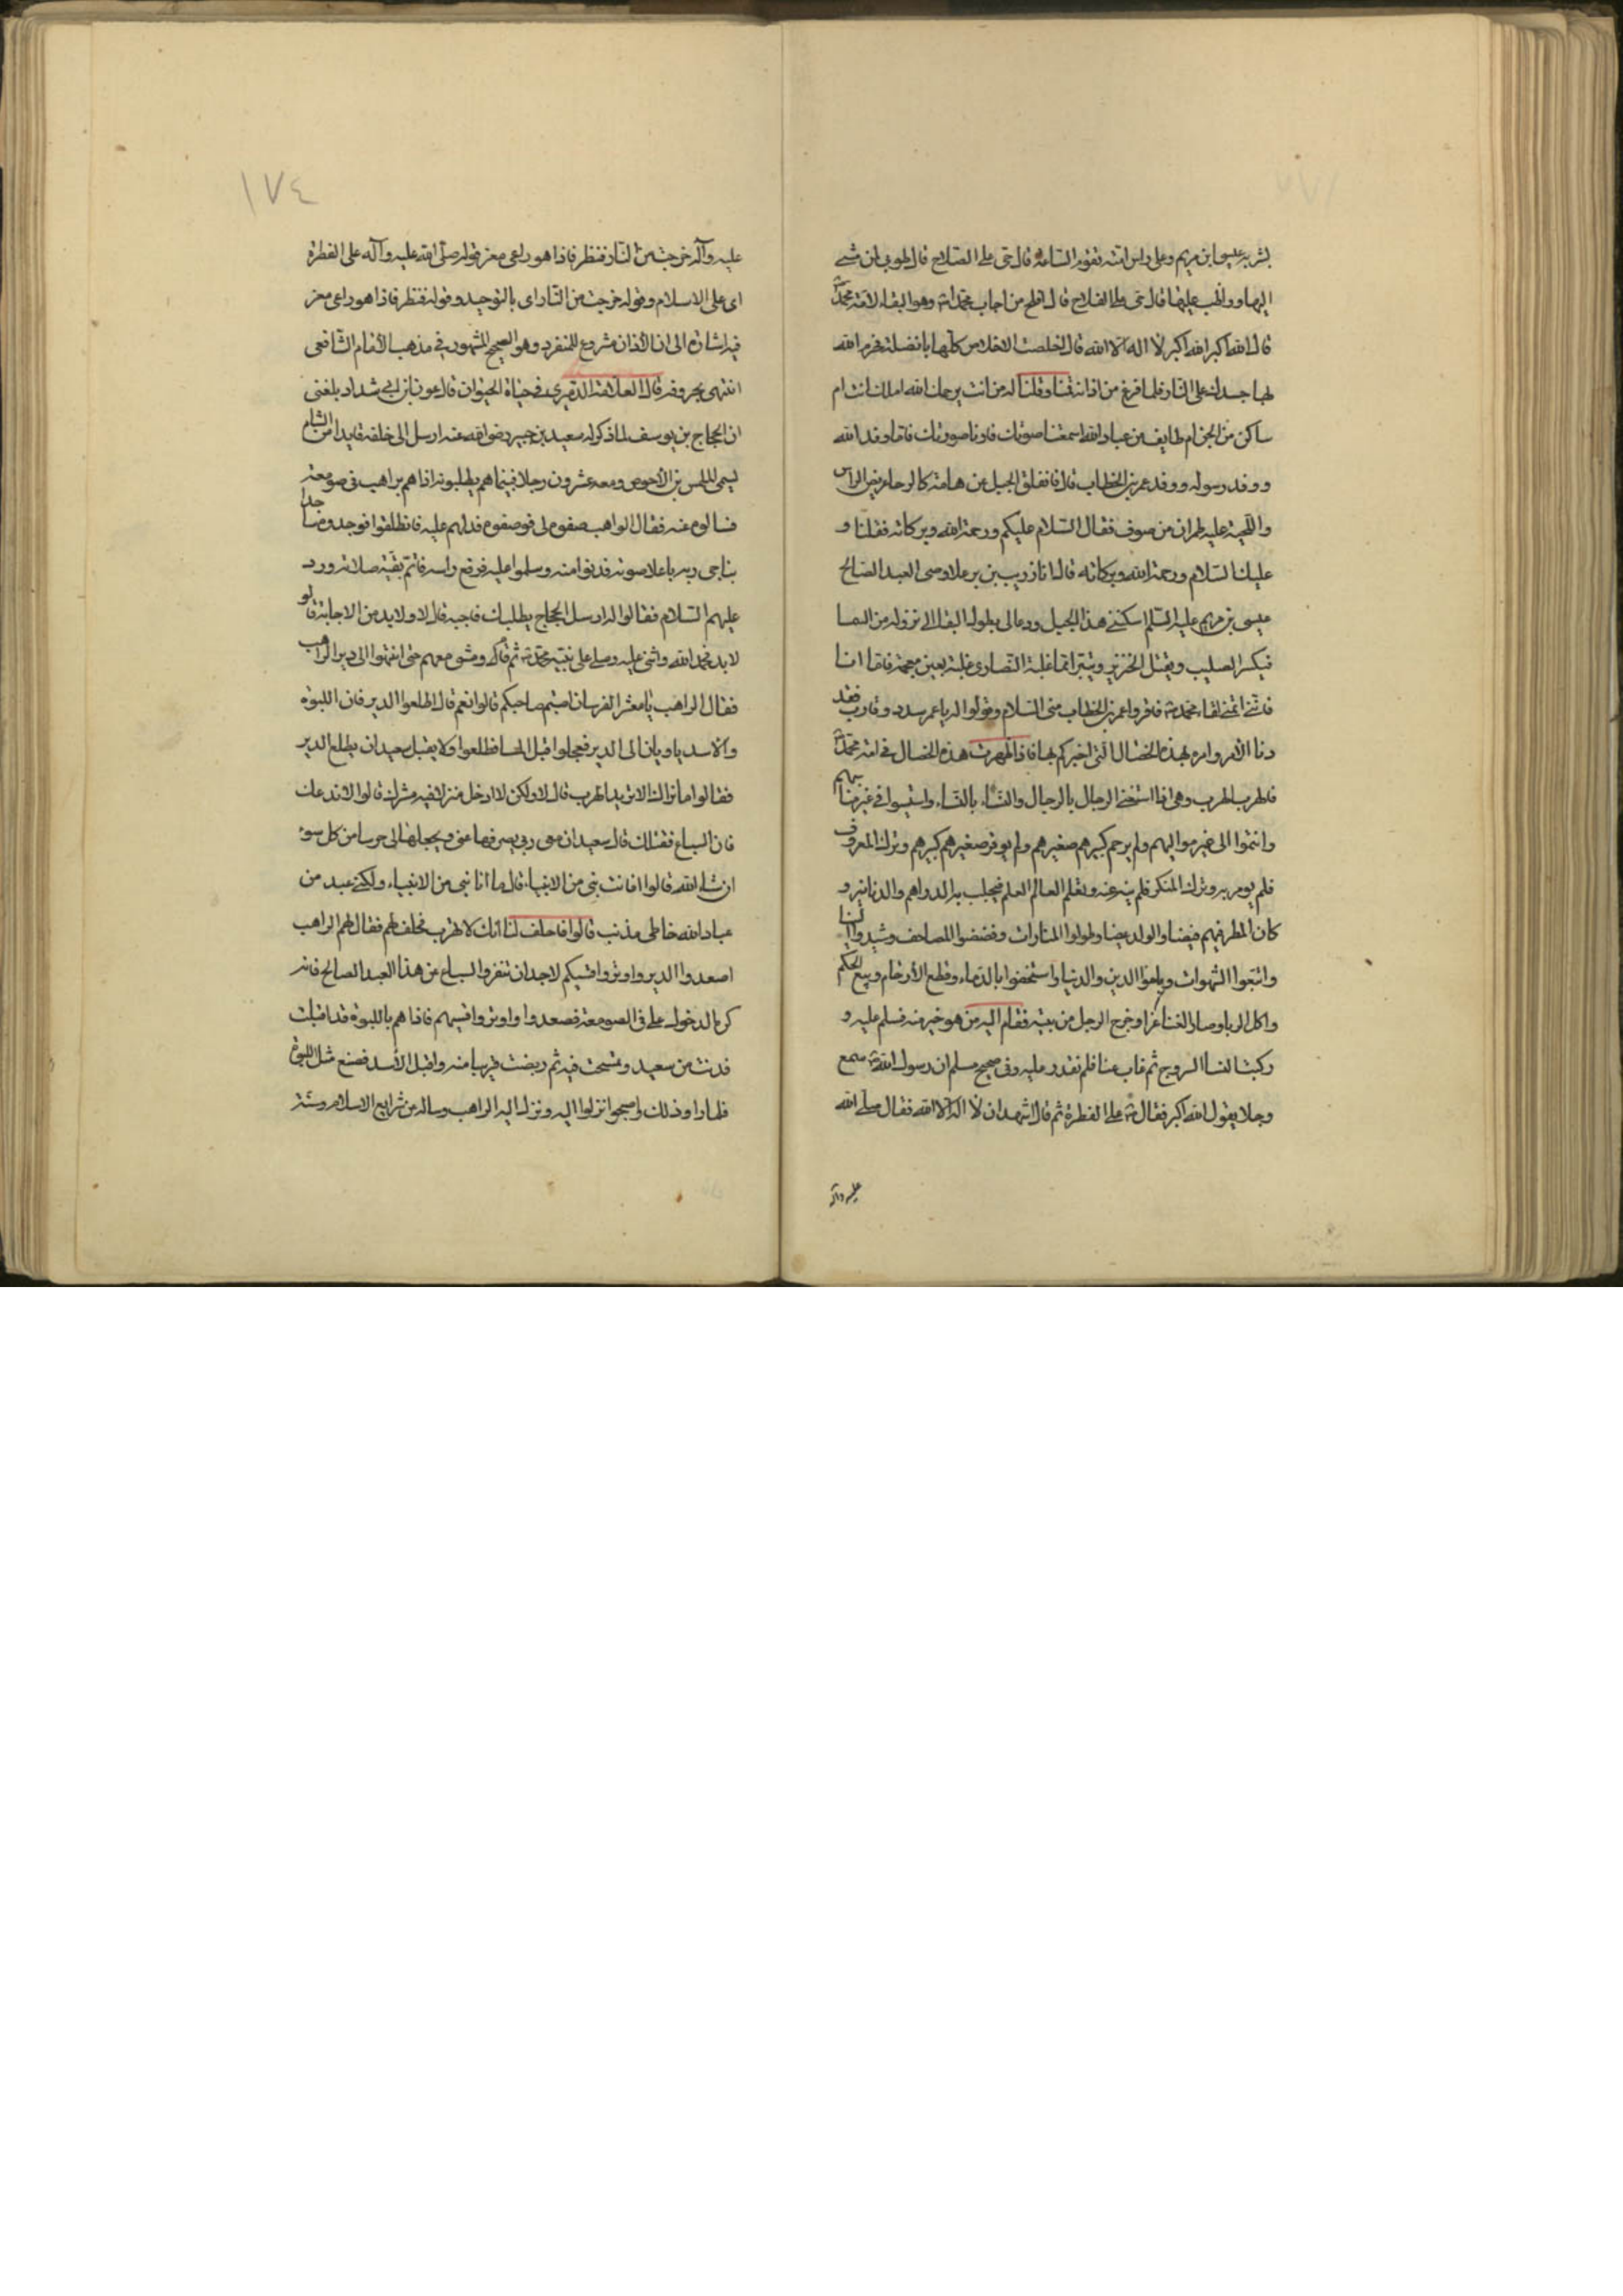 بشر به عيسى ابن مريم وعلى راس امته تقوم الساعة قال حي على الصلاح قال طوبى لمن مشى
اليها وواظب عليها قال حي على الفلاح قال افلح من اجاب محمدا وهو البقاء لامة محمد
قال الله اكبر الله اكبر لا اله الا الله قال اخلصت الاخلاص كلها يا نضلة فحرم الله
بها جسدك على النار فلما فرغ من اذانه قمنا وقلنا له من انت يرحمك الله املك انت ام
ساكن من الجن ام طايف من عباد الله اسمعتنا صوتك فارنا صورتك فانا وفد الله
ووفد رسوله ووفد عمر بن الخطاب قال فانفلق الجبل عن هامة كالرحا ابيض الراس
واللحية عليه طمران من صوف فقال السلام عليكم ورحمة الله وبركاته فقلنا و
عليك السلام ورحمة الله وبركاته قال انا زريب بن برعلا وصى العبد الصالح
عيسى بن مريم عليه السلم اسكنني هذا الجبل ودعا لى بطول البقا الى نزوله من السما
فيكسر الصليب ويقتل الخنزير ويتبرا مما غلبة النصارى غلبة بعين معجمة فاما اذا
فاتنى لقاء محمد فاقروا عمر بن الخطاب منى السلام وقولوا له يا عمر سدد وقارب فقد
دنا الامر وامره بهذه الخصال التى اخبركم بها فاذا ظهرت هذه الخصال فى امة محمد
فالهرب الهرب وهى اذا استغنى الرجال بالرجال والنساء بالنساء وانتسبوا فى غير مناسبهم
وانتموا الى غير مواليهم ولم يرحم كبيرهم صغيرهم ولم يوقر صغيرهم كبيرهم وترك المعروف
فلم يومر به وترك المنكر فلم ينه عنه وتعلم العالم العلم فيجلب به الدراهم والدنانير و
كان المطر فيهم قيضا والولد غيضا وطولوا المنارات وفضضوا المصاحف وشيدوا البنا
واتبعوا الشهوات وباعوا الدين والدنيا واستخفوا بالدماء وقطع الارحام وبيع الحكم
واكل الربا وصار الغنا عزا وخرج الرجل من بيته فقام اليه من هو خير منه فسلم عليه و
ركبت النسا السروج ثم غاب عنا فلم نقدر عليه وفى صحيح مسلم ان رسول الله سمع
رجلا يقول الله اكبر فقال على الفطرة ثم قال اشهد ان لا اله الا الله فقال صلى الله
عليه وآله
١٧٤
عليه وآله خرجت من النار فنظر فاذا هو راعى معز قوله صلى الله عليه وآله على الفطرة
اى على الاسلام وقوله خرجت من النار اى بالتوحيد وقوله فنظر فاذا هو راعى معز
فيه اشارة الى ان الاذان مشروع للمنفرد وهو الصحيح المشهور فى مذهب الامام الشافعى
انتهى بحروفه قال العلامة الدميرى فى حياة الحيوان قال عون بن ابى شداد بلغنى
ان الحجاج بن يوسف لما ذكر له سعيد بن جبير رضى الله عنه ارسل الى خلفه قايدا من الشام
يسمى المتلمس بن الاحوص ومعه عشرون رجلا فبينما هم يطلبونه اذا هم براهب فى صومعته
فسالوه عنه فقال الراهب صفوه لى فوصفوه فدلهم عليه فانطلقوا فوجدوه ساجدا
يناجى ربه باعلا صوته فدنوا منه وسلموا عليه فرفع راسه فاتم بقية صلاته ورد
عليهم السلام فقالوا له ارسل الحجاج يطلبك فاجبه قال ولا بد من الاجابة قالو
لا بد فحمد الله واثنى عليه وصلى على نبيه محمد ثم قام ومشى معهم حتى انتهوا الى دير الراهب
فقال الراهب يا معشر الفرسان اصبتم صاحبكم قالوا نعم قال اطلعوا الدير فان اللبوة
والاسد ياويان الى الدير فعجلوا قبل المسا فطلعوا ولا يقبل سعيد ان يطلع الدير
فقالوا ما نراك الا تريد الهرب قال لا ولكن لا ادخل منزلا فيه مشرك قالوا لا ندعك
فان السباع تقتلك قال سعيد ان معى ربى يصرفها عنى ويجعلها لى حرسا من كل سوء
ان شاء الله قالوا افانت نبى من الانبياء قال ما انا نبى من الانبياء ولكنى عبد من
عباد الله خاطى مذنب قالوا فاحلف لنا انك لا تهرب فحلف لهم فقال لهم الراهب
اصعدوا الدير واوتروا قسيكم لاجل ان تنفروا السباع عن هذا العبد الصالح فانه
كره الدخول على فى الصومعة فصعدوا واوتروا قسيهم فاذا هم باللبوة قد اقبلت
فدنت من سعيد وتمسحت فيه ثم ربضت قريبا منه واقبل الاسد فصنع مثل اللبوة
فلما راوا ذلك واصبحوا نزلوا اليه ونزل اليه الراهب وساله عن شرايع الاسلام وسنة